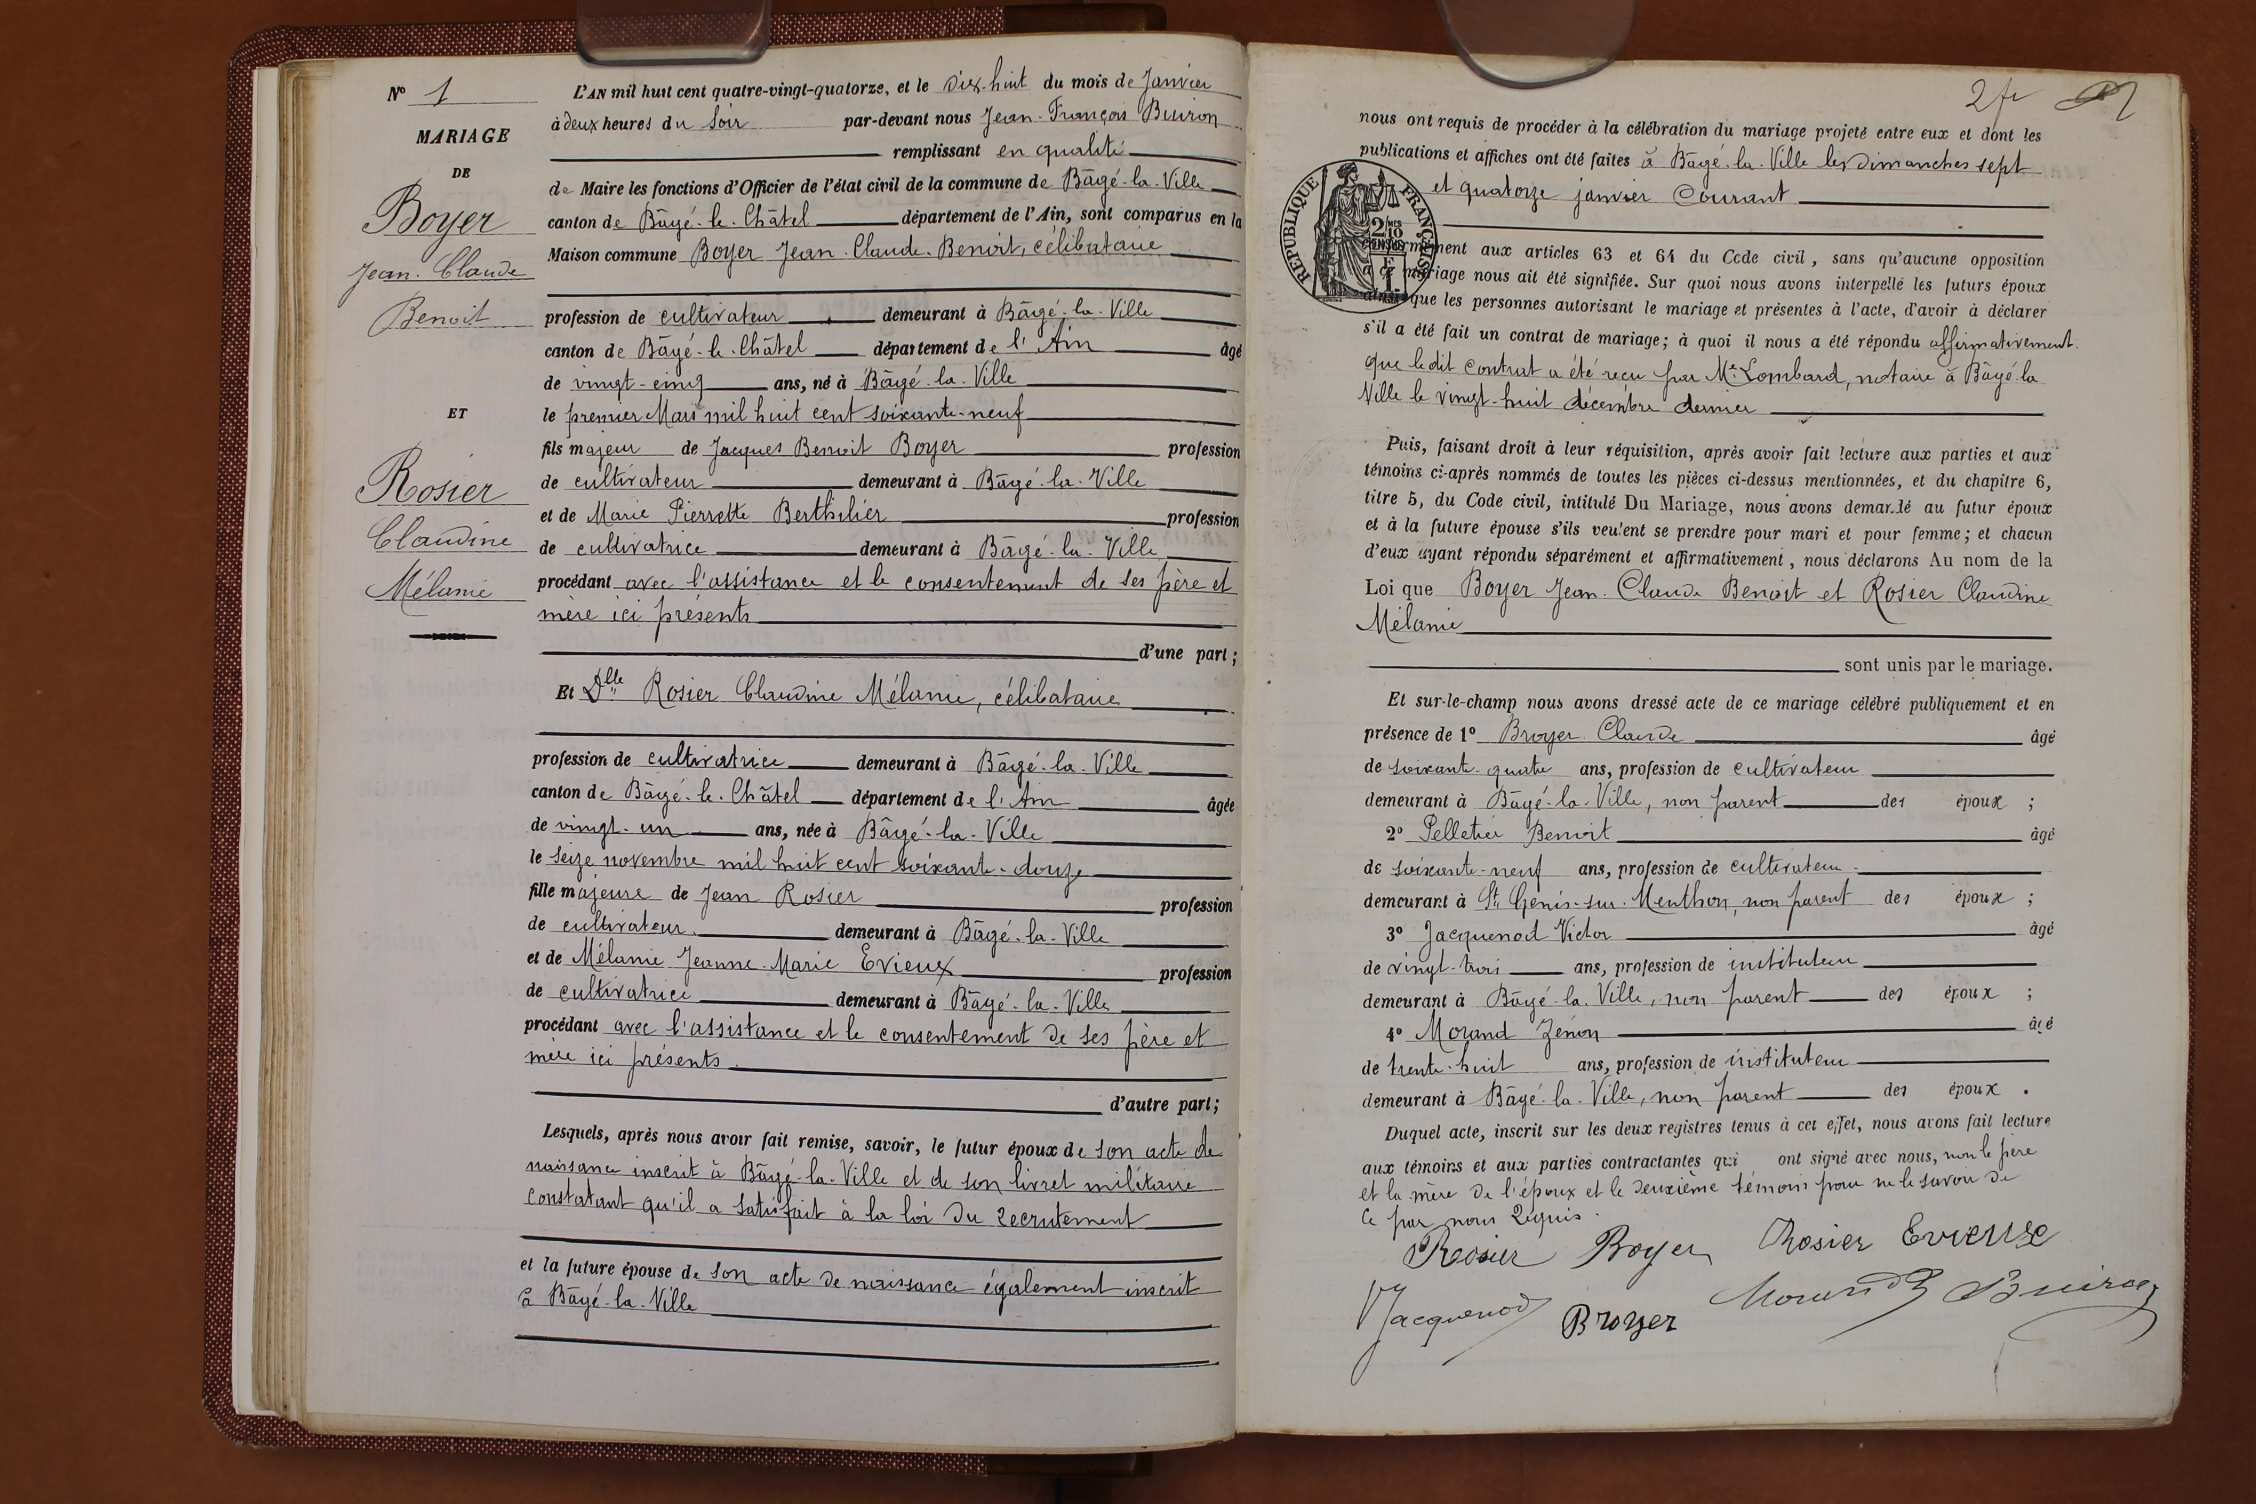 N° 1
MARIAGE
DE
Boyer
Jean-Claude
Benoit
ET
Rosier
Claudine
Mélanie
L'AN mil huit cent quatre-vingt-quatorze, et le dix-huit du mois de Janvier
à deux heures du soir par-devant nous Jean-François Buiron
remplissant en qualité
de Maire les fonctions d'Officier de l'état civil de la commune de Bâgé-la-Ville
canton de Bâgé-le-Châtel département de l'Ain, sont comparus en la
Maison commune Boyer Jean-Claude-Benoit, célibataire
profession de cultivateur demeurant à Bâgé-la-Ville
canton de Bâgé-le-Châtel département de l'Ain âgé
de vingt-cinq ans, né à Bâgé-la-Ville
le premier Mars mil huit cent soixante-neuf
fils majeur de Jacques Benoit Boyer profession
de cultivateur demeurant à Bâgé-la-Ville
et de Marie Pierrette Berthilier profession
de cultivatrice demeurant à Bâgé-la-Ville
procédant avec l'assistance et le consentement de ses père et
mère ici présents
d'une part;
Et Dlle Rosier Claudine Mélanie, célibataire
profession de cultivatrice demeurant à Bâgé-la-Ville
canton de Bâgé-le-Châtel département de l'Ain âgée
de vingt-un ans, née à Bâgé-la-Ville
le seize novembre mil huit cent soixante-douze
fille majeure de Jean Rosier profession
de cultivateur demeurant à Bâgé-la-Ville
et de Mélanie Jeanne-Marie Evieux profession
de cultivatrice demeurant à Bâgé-la-Ville
procédant avec l'assistance et le consentement de ses père et
mère ici présents
d'autre part;
Lesquels, après nous avoir fait remise, savoir, le futur époux de son acte de
naissance inscrit à Bâgé-la-Ville et de son livret militaire
constatant qu'il a satisfait à la loi du recrutement
et la future épouse de son acte de naissance également inscrit
à Bâgé-la-Ville
2 fr
nous ont requis de procéder à la célébration du mariage projeté entre eux et dont les
publications et affiches ont été faites à Bâgé-la-Ville les dimanches sept
et quatorze janvier courant
RÉPUBLIQUE FRANÇAISE
2/10
conformément aux articles 63 et 64 du Code civil, sans qu'aucune opposition
à ce mariage nous ait été signifiée. Sur quoi nous avons interpellé les futurs époux
ainsi que les personnes autorisant le mariage et présentes à l'acte, d'avoir à déclarer
s'il a été fait un contrat de mariage; à quoi il nous a été répondu affirmativement
que le dit contrat a été reçu par Me Lombard, notaire à Bâgé-la
Ville le vingt-huit décembre dernier
Puis, faisant droit à leur réquisition, après avoir fait lecture aux parties et aux
témoins ci-après nommés de toutes les pièces ci-dessus mentionnées, et du chapitre 6,
titre 5, du Code civil, intitulé Du Mariage, nous avons demandé au futur époux
et à la future épouse s'ils veulent se prendre pour mari et pour femme; et chacun
d'eux ayant répondu séparément et affirmativement, nous déclarons Au nom de la
Loi que Boyer Jean-Claude Benoit et Rosier Claudine
Mélanie
sont unis par le mariage.
Et sur-le-champ nous avons dressé acte de ce mariage célébré publiquement et en
présence de 1° Broyer Claude âgé
de soixante-quatre ans, profession de cultivateur
demeurant à Bâgé-la-Ville, non parent des époux ;
2° Pelletier Benoit âgé
de soixante-neuf ans, profession de cultivateur
demeurant à St Génis-sur-Menthon, non parent des époux ;
3° Jacquenod Victor âgé
de vingt-trois ans, profession de instituteur
demeurant à Bâgé-la-Ville, non parent des époux ;
4° Morand Zénon âgé
de trente-huit ans, profession de instituteur
demeurant à Bâgé-la-Ville, non parent des époux .
Duquel acte, inscrit sur les deux registres tenus à cet effet, nous avons fait lecture
aux témoins et aux parties contractantes qui ont signé avec nous, non le père
et la mère de l'époux et le deuxième témoin pour ne le savoir de
ce par nous requis.
Rosier Boyer Rosier Evieux
VJacquenod Broyer Morand Z Buiron